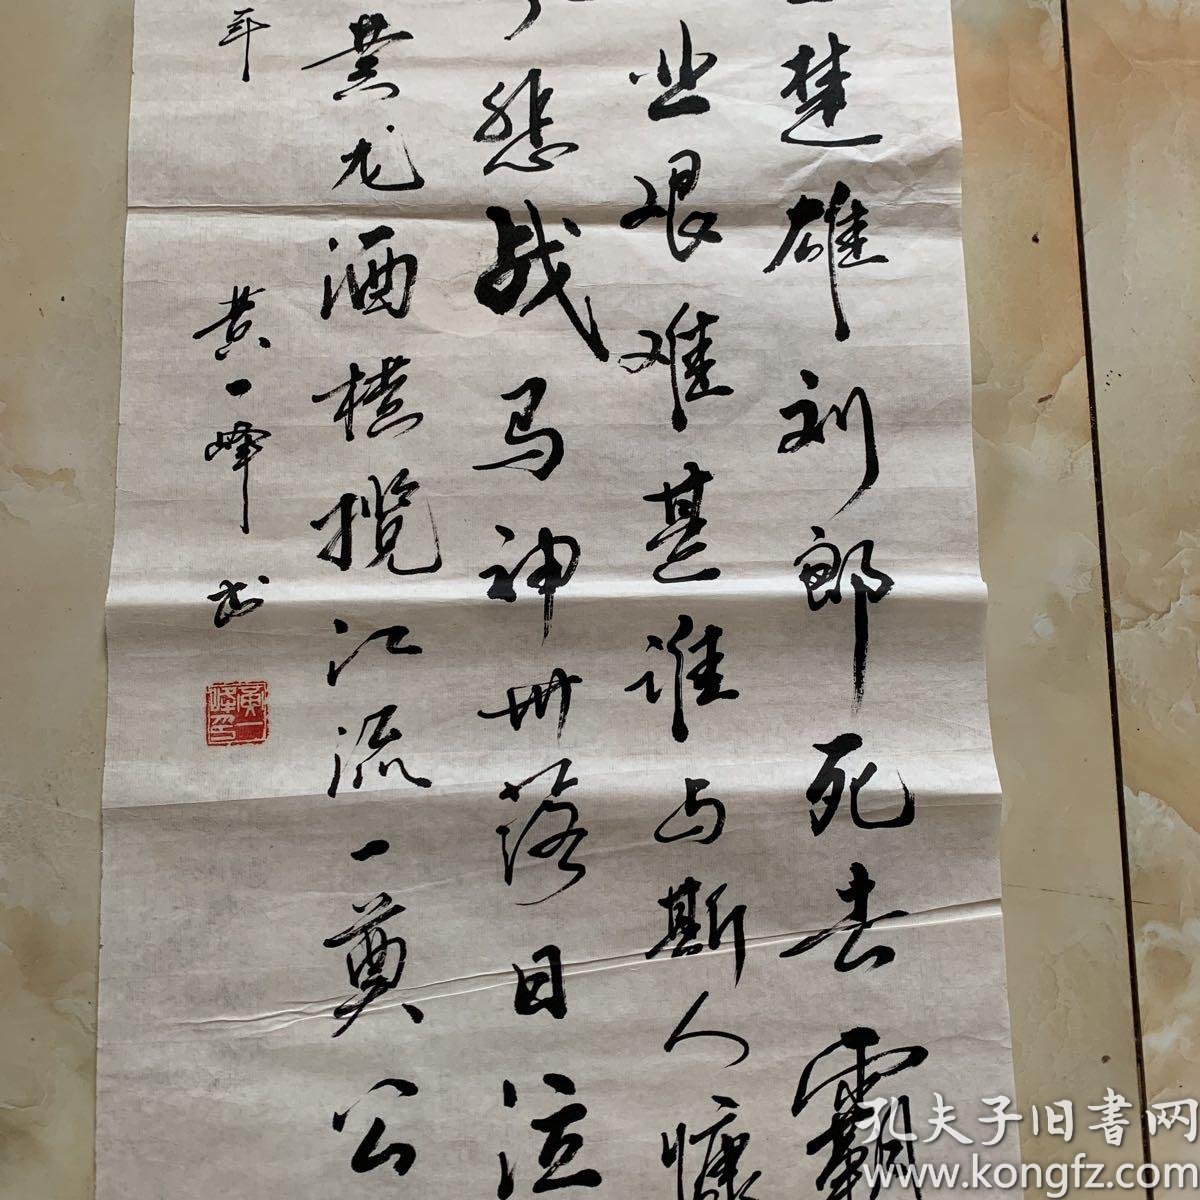 楚雄刘郎死去霸
业艰难甚谁与斯人慷
悲战马神州落日泣
黄龙酒楼揽江流一奠公
年
黄一峰书
黄一峰印
孔夫子旧书网
www.kongfz.com